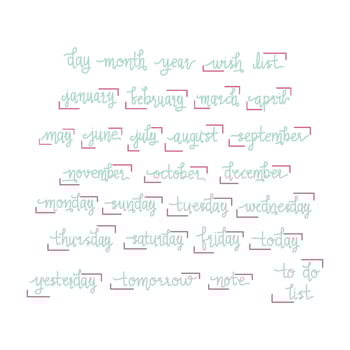 day month year wish list
january february march april
may june july august september
november october december
monday sunday tuesday wednesday
thursday saturday friday today
yesterday tomorrow note to do
list